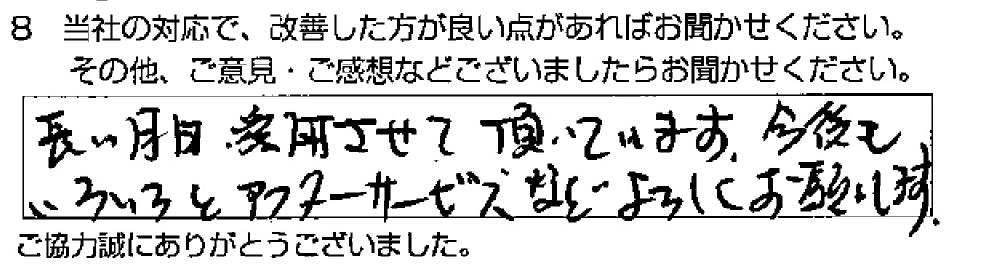 8 当社の対応で、改善した方が良い点があればお聞かせください。
その他、ご意見・ご感想などございましたらお聞かせください。
長い月日、愛用させて頂いています。今後も
いろいろとアフターサービスなどよろしくお願いします。
ご協力誠にありがとうございました。